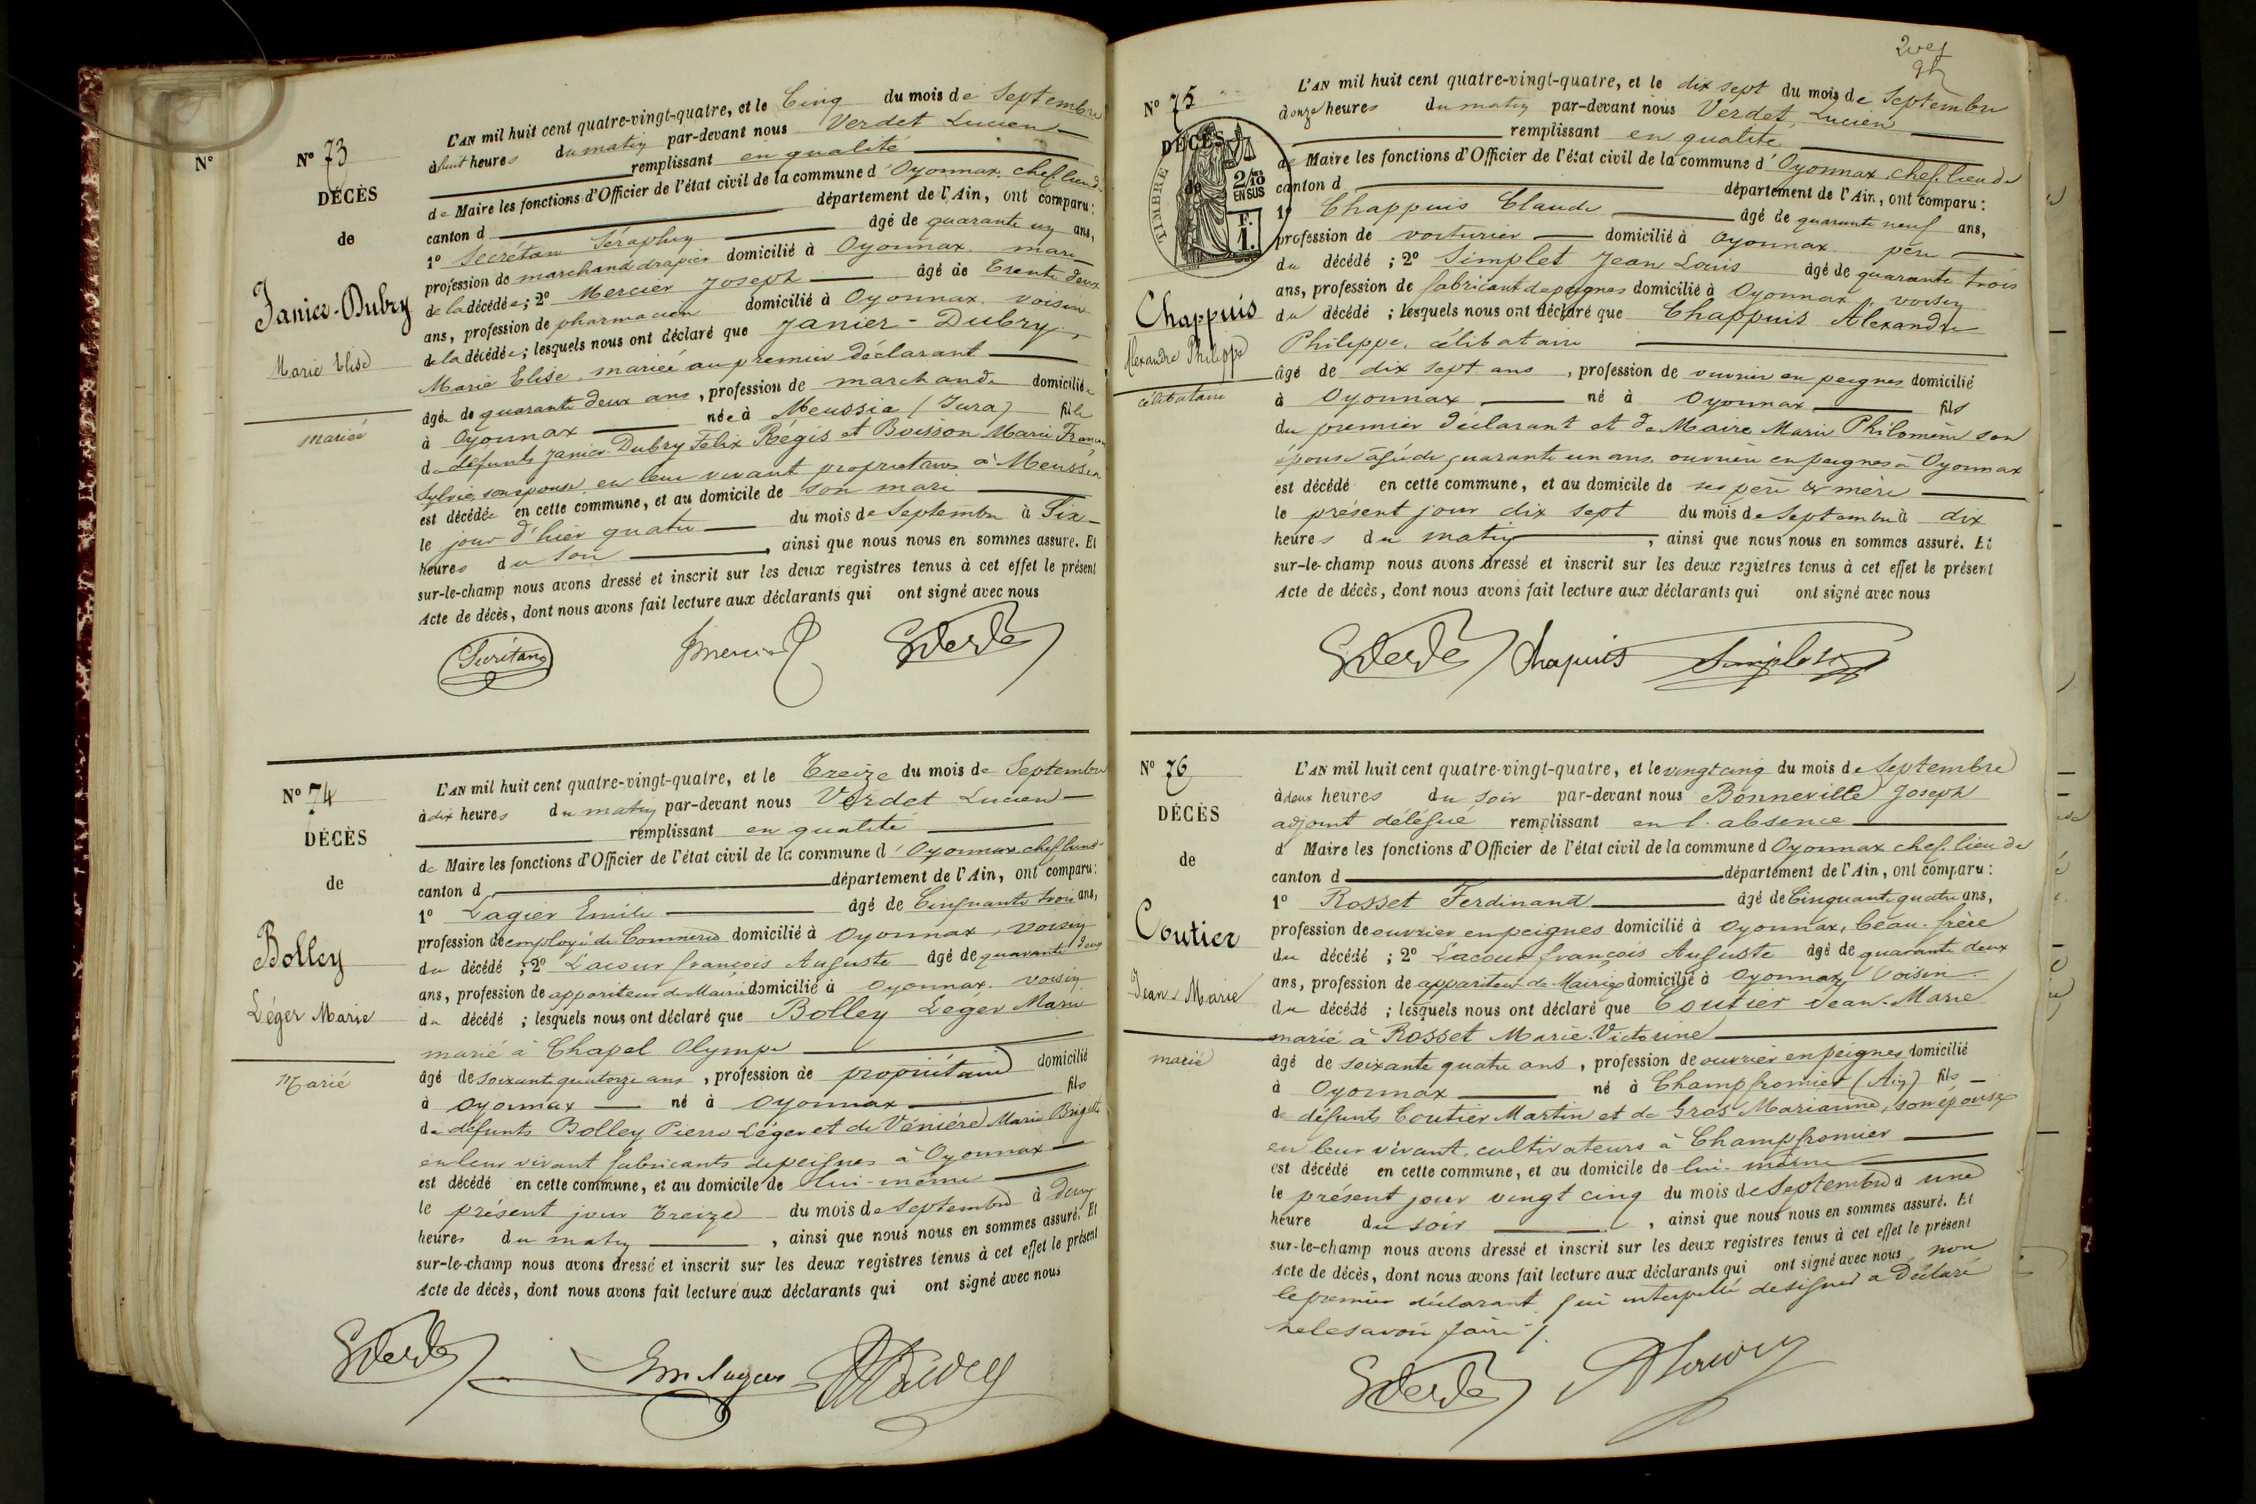 Nº
Nº 73
DÉCÈS
de
Janier-Dubry
Marie Elise
mariée
L'AN mil huit cent quatre-vingt-quatre, et le Cinq du mois de Septembre
à huit heures du matin par-devant nous Verdet Lucien
remplissant en qualité
de Maire les fonctions d'Officier de l'état civil de la commune d'Oyonnax, chef lieu de
canton d département de l'Ain, ont comparu:
1º Secrétan Séraphin âgé de quarante un ans,
profession de marchand drapier domicilié à Oyonnax mari
de la décédée; 2º Mercier Joseph âgé de Trente deux
ans, profession de pharmacien domicilié à Oyonnax. voisin
de la décédée; lesquels nous ont déclaré que Janier-Dubry,
Marie Elise, mariée au premier déclarant
âgée de quarante deux ans, profession de marchande domiciliée
à Oyonnax née à Meussia (Jura) fille
de défunts Janier-Dubry Félix Régis et Buisson Marie
Sylvie, son épouse, en leur vivant propriétaires à Meussia
est décédée en cette commune, et au domicile de son mari
le jour d'hier quatre du mois de Septembre à Six
heures du soir, ainsi que nous nous en sommes assuré. Et
sur-le-champ nous avons dressé et inscrit sur les deux registres tenus à cet effet le présent
Acte de décès, dont nous avons fait lecture aux déclarants qui ont signé avec nous
Secrétan Jmercier Verdet
Nº 74
DÉCÈS
de
Bolley
Léger Marie
Marié
L'AN mil huit cent quatre-vingt-quatre, et le Treize du mois de Septembre
à dix heures du matin par-devant nous Verdet Lucien
remplissant en qualité
de Maire les fonctions d'Officier de l'état civil de la commune d'Oyonnax chef lieu de
canton d département de l'Ain, ont comparu:
1º Lagier Emile âgé de Cinquante trois ans,
profession de employé de Commerce domicilié à Oyonnax, voisin
du décédé; 2º Lacour françois Auguste âgé de quarante deux
ans, profession de appariteur de Mairie domicilié à Oyonnax. voisin
du décédé; lesquels nous ont déclaré que Bolley Léger Marie
marié à Chapel Olympe
âgé de soixante quatorze ans, profession de propriétaire domicilié
à Oyonnax né à Oyonnax fils
de défunts Bolley Pierre Léger et de Vénière Marie Brigitte
en leur vivant fabricants de peignes à Oyonnax
est décédé en cette commune, et au domicile de lui-même
le présent jour treize du mois de Septembre à deux
heures du matin, ainsi que nous nous en sommes assuré. Et
sur-le-champ nous avons dressé et inscrit sur les deux registres tenus à cet effet le présent
Acte de décès, dont nous avons fait lecture aux déclarants qui ont signé avec nous
Verdet
Nº 75
DÉCÈS
de
TIMBRE
2/10
EN SUS
F.
1.
Chappuis
Alexandre Philippe
célibataire
L'AN mil huit cent quatre-vingt-quatre, et le dix sept du mois de Septembre
à onze heures du matin par-devant nous Verdet, Lucien
remplissant en qualité
de Maire les fonctions d'Officier de l'état civil de la commune d'Oyonnax, chef-lieu de
canton d département de l'Ain, ont comparu:
1º Chappuis Claude âgé de quarante neuf ans,
profession de voiturier domicilié à Oyonnax père
du décédé; 2º Simplet Jean Louis âgé de quarante trois
ans, profession de fabricant de peignes domicilié à Oyonnax, voisin
du décédé; lesquels nous ont déclaré que Chappuis Alexandre
Philippe, célibataire
âgé de dix sept ans, profession de ouvrier en peignes domicilié
à Oyonnax né à Oyonnax fils
du premier déclarant et de Maire Marie Philomène son
épouse âgée de quarante un ans ouvrière en peignes à Oyonnax
est décédé en cette commune, et au domicile de ses père & mère
le présent jour dix sept du mois de Septembre à dix
heures du matin, ainsi que nous nous en sommes assuré. Et
sur-le-champ nous avons dressé et inscrit sur les deux registres tenus à cet effet le présent
Acte de décès, dont nous avons fait lecture aux déclarants qui ont signé avec nous
Verdet Chapuis Simplet
Nº 76
DÉCÈS
de
Coutier
Jean-Marie
marié
L'AN mil huit cent quatre-vingt-quatre, et le vingt cinq du mois de Septembre
à deux heures du soir par-devant nous Bonneville Joseph
adjoint délégué remplissant en l'absence
d Maire les fonctions d'Officier de l'état civil de la commune d Oyonnax chef-lieu de
canton d département de l'Ain, ont comparu:
1º Rosset Ferdinand âgé de Cinquante quatre ans,
profession de ouvrier en peignes domicilié à Oyonnax, beau-frère
du décédé; 2º Lacour françois Auguste âgé de quarante deux
ans, profession de appariteur de Mairie domicilié à Oyonnax, voisin
du décédé; lesquels nous ont déclaré que Coutier Jean-Marie
marié à Rosset Marie-Victorine
âgé de soixante quatre ans, profession de ouvrier en peignes domicilié
à Oyonnax né à Champfromier (Ain) fils
de défunts Coutier Martin et de Gros Marianne, son épouse
en leur vivant, cultivateurs à Champfromier
est décédé en cette commune, et au domicile de lui-même
le présent jour vingt cinq du mois de Septembre à une
heure du soir, ainsi que nous nous en sommes assuré. Et
sur-le-champ nous avons dressé et inscrit sur les deux registres tenus à cet effet le présent
Acte de décès, dont nous avons fait lecture aux déclarants qui ont signé avec nous, non
le premier déclarant, qui interpellé de signer a déclaré
ne le savoir faire ./.
Verdet